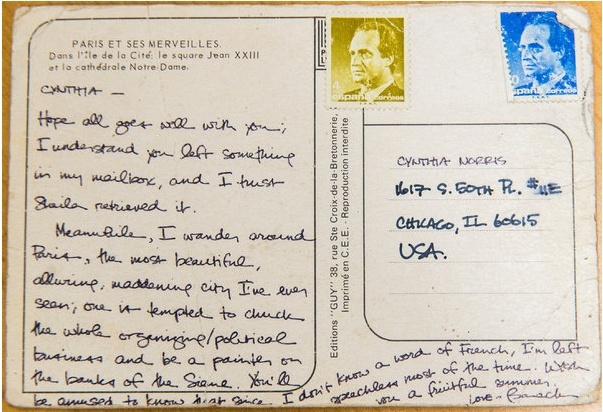 PARIS ET SES MERVEILLES.
Dans l'Île de la Cité: le square Jean XXIII
et la cathédrale Notre-Dame.
CYNTHIA —
Hope all goes well with you;
I understand you left something
in my mailbox, and I trust
Sheila retrieved it.
Meanwhile, I wander around
Paris, the most beautiful,
alluring, maddening city I've ever
seen; one is tempted to chuck
the whole organizing/political
business and be a painter on
the banks of the Siene. You'll
be amused to know that since I don't know a word of French, I'm left
speechless most of the time. Wish
you a fruitful summer.
Love - Barack
Editions "GUY" 38, rue Ste Croix-de-la-Bretonnerie,
Imprimé en C.E.E. - Reproduction interdite
españa correos
españa correos
CYNTHIA NORRIS
1617 S. 50TH PL. #11E
CHICAGO, IL 60615
USA.